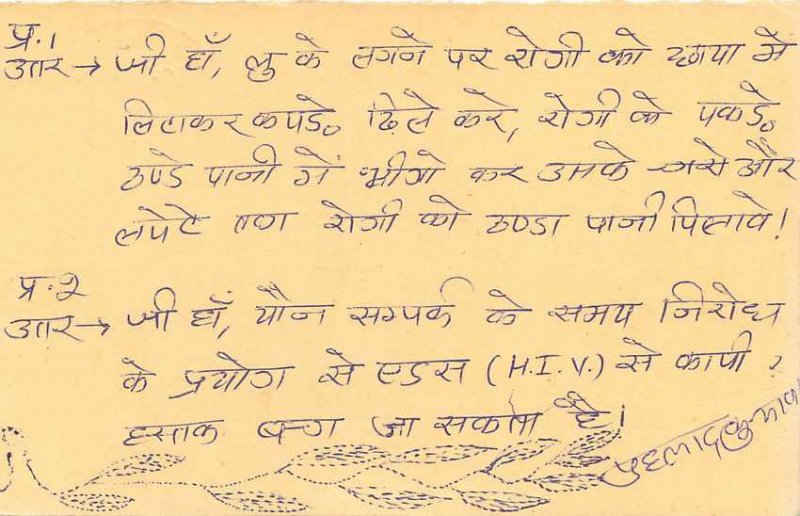 प्र.1
उत्तर → जी हाँ, लु के लगने पर रोगी को छाया में
लिटाकर कपडे. ढिले करे, रोगी के पकडे.
ठण्डे पानी में भीगो कर उसके और
लपेटे तथा रोगी को ठण्डा पानी पिलावे!
प्र.२
उत्तर → जी हाँ, यौन सम्पर्क के समय निरोध
के प्रयोग से एडस (H.I.V.) से कापी
हस्तक बचा जा सकता है।
प्रहलाद कुमावत